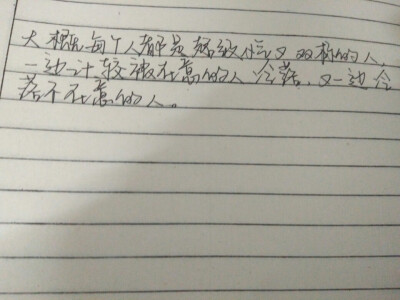 大概每个人都是超级任性又双标的人，
一边计较被在意的人冷落，又一边冷
落不在意的人。